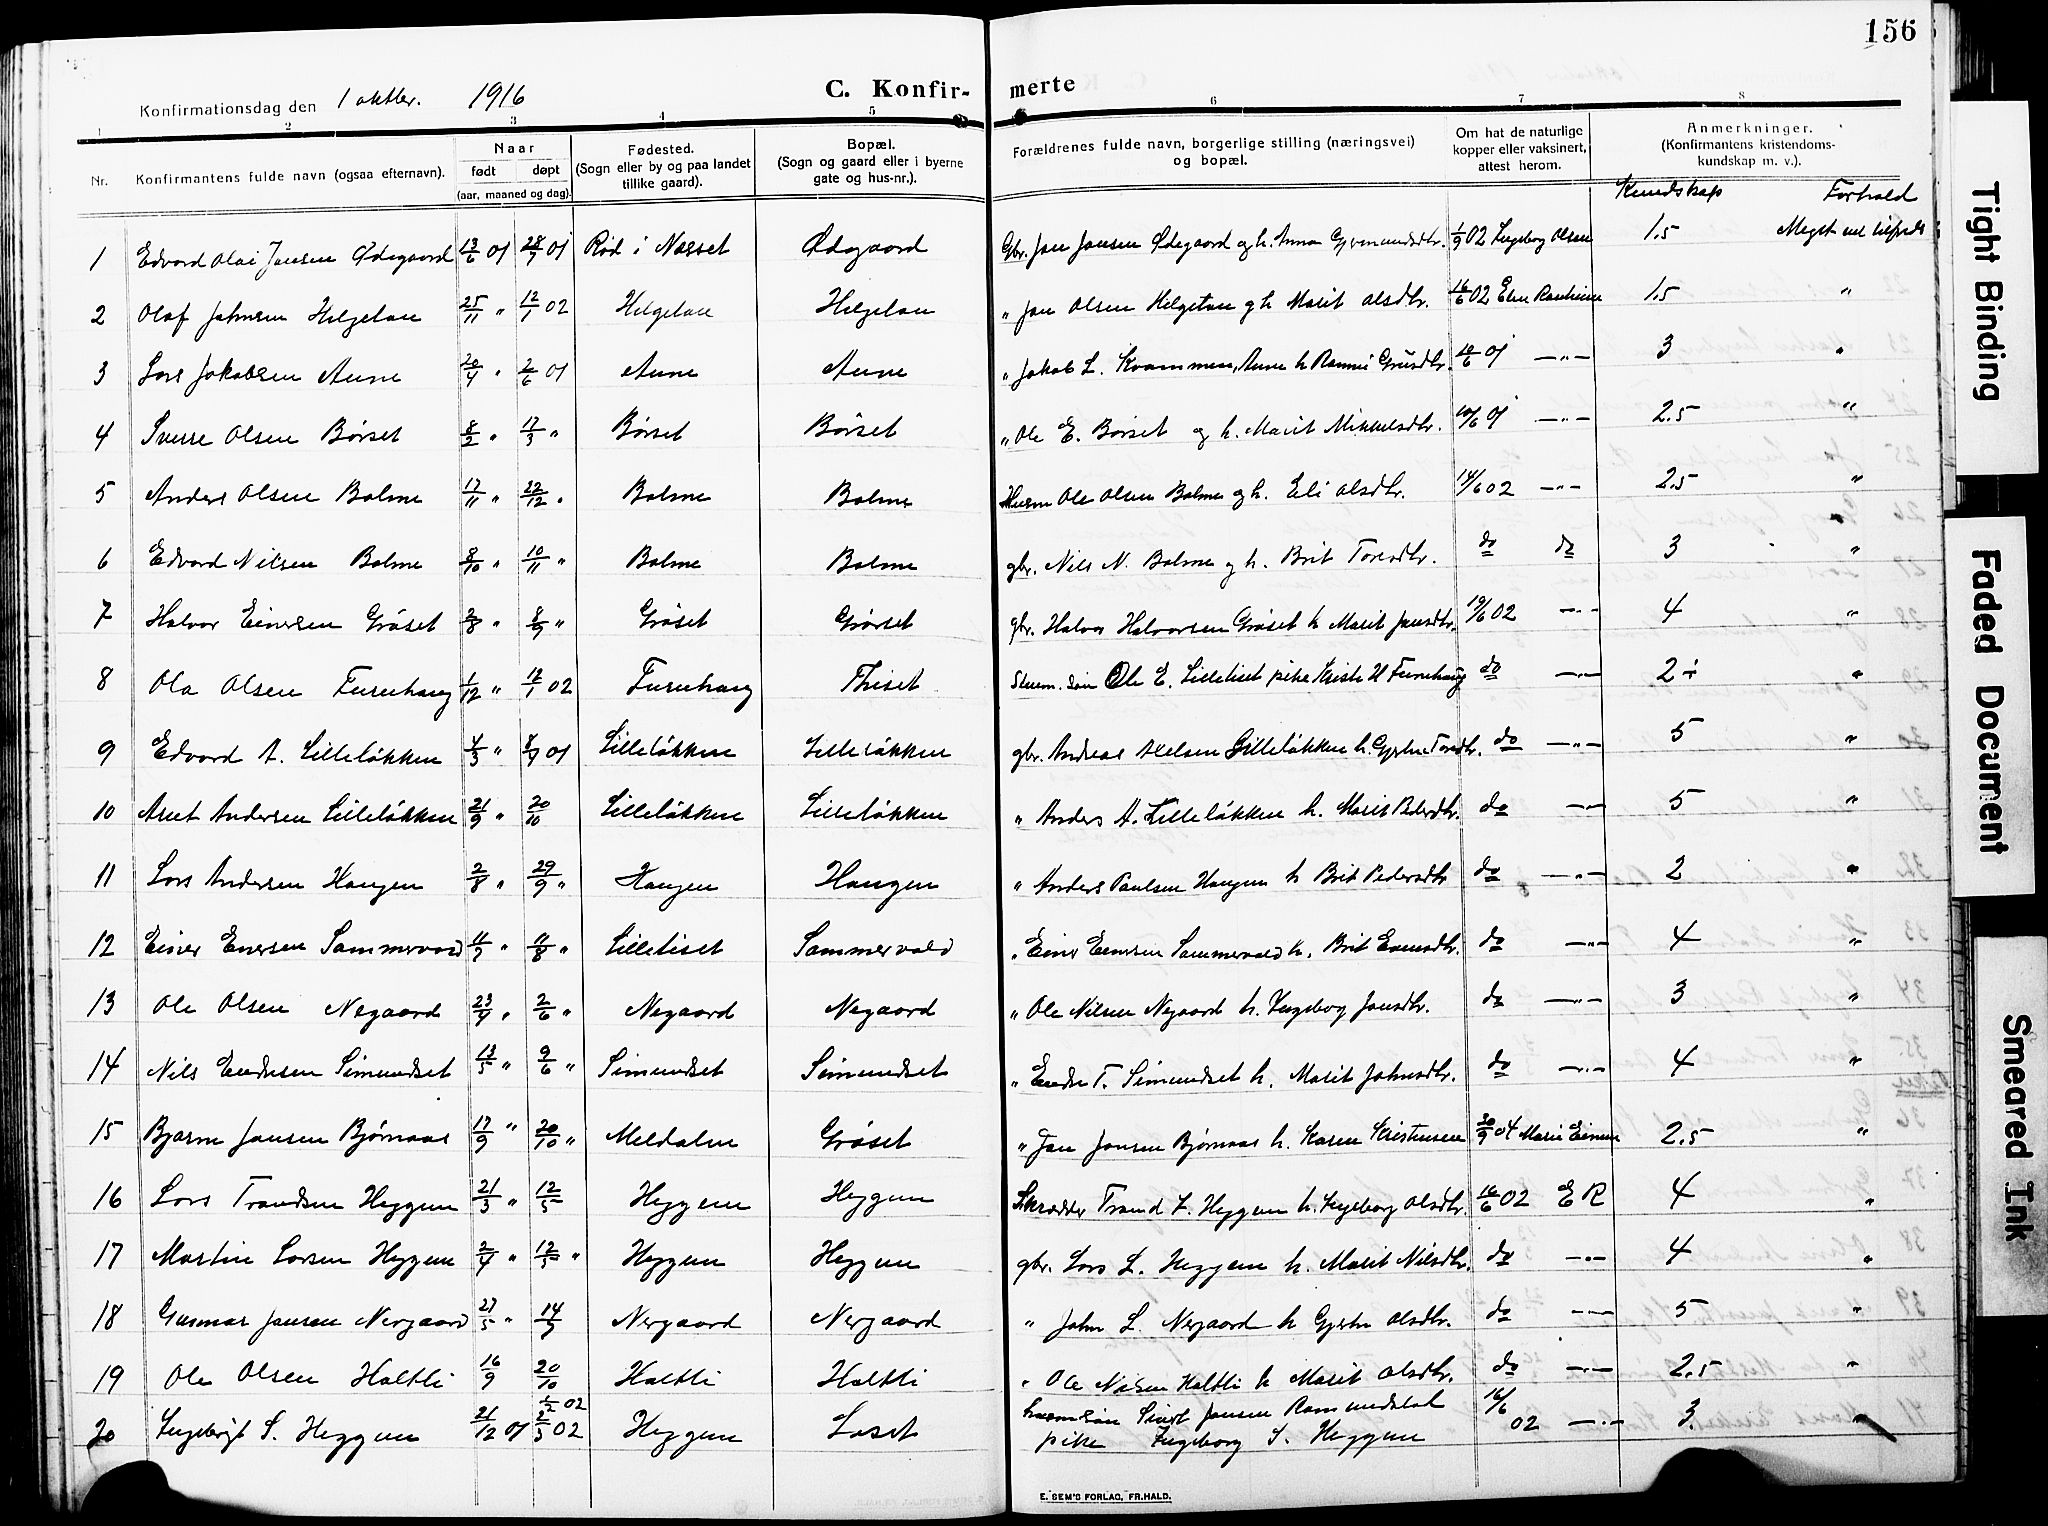 156
Konfirmationsdag den 1 oktbr. 1916 C. Konfir- merte
1 2 3 4 5 6 7 8
Nr. Konfirmantens fulde navn (ogsaa efternavn). Naar født døpt (aar, maaned og dag). Fødested. (Sogn eller by og paa landet tillike gaard). Bopæl. (Sogn og gaard eller i byerne gate og hus-nr.). Forældrenes fulde navn, borgerlige stilling (næringsvei) og bopæl. Om hat de naturlige kopper eller vaksinert, attest herom. Anmerkninger. (Konfirmantens kristendoms- kundskap m. v.).
Kundskap Forhold
1 Edvard Olai Jonsen Ødegaard 13/6 01 28/7 01 Rød i Nesset Ødegaard Gbr. Jon Jonsen Ødegaard og h. Anna 1/9 02 Ingeborg Olsen 1.5 Meget vel tilfreds
2 Olaf Johnsen Helgetun 25/11 " 12/1 02 Helgetun Helgetun " Jon Olsen Helgetun og h Marit Olsdtr. 16/6 02 Elen Ranheim 1.5 "
3 Lars Jakobsen Aune 20/4 " 2/6 01 Aune Aune " Jakob L. Kvammen, Aune h 10/6 01 —"— 3 "
4 Sverre Olsen Børset 8/2 " 17/3 " Børset Børset " Ole E. Børset og h. Marit Mikkelsdtr. 10/6 01 —"— 2.5 "
5 Anders Olsen Bolme 17/11 " 22/12 " Bolme Bolme Husm Ole Olsen Bolme og h. Eli Olsdtr. 14/6 02 —"— 2.5 "
6 Edvard Nilsen Bolme 8/10 " 10/11 " Bolme Bolme gbr. Nils N. Bolme og h. Brit Toresdtr. do do 3 "
7 Halvor Einersen Grøset 2/8 " 8/9 " Grøset Grøset gbr. Halvor Halvorsen Grøset h Marit Jonsdtr. 10/6 02 —"— 4 "
8 Ola Olsen Furuhaug 1/12 " 12/1 02 Furuhaug Thiset Ole E. Lilletiset pike Kristi H Furuhaug do —"— 2÷ "
9 Edvard A. Lilleløkken 4/3 " 01 Lilleløkken Lilleløkken gbr. Andreas Lilleløkken h. Gjertru Toresdtr. do —"— 5 "
10 Arnt Andersen Lilleløkken 21/9 " 20/10 Lilleløkken Lilleløkken " Anders A. Lilleløkken h. Marit Pedersdtr. do —"— 5 "
11 Lars Andersen Haugen 2/8 " 29/9 " Haugen Haugen " Anders Paulsen Haugen h Brit Pedersdtr do —"— 2 "
12 Einer Enersen Sammervold 11/7 " 11/8 " Lilletiset Sammervold " Einer Einersen Sammervold h. Brit Evensdtr. do —"— 4 "
13 Ole Olsen Negaard 23/4 " 2/6 " Negaard Negaard " Ole Nilsen Negaard h. Ingeborg Jonsdtr. do —"— 3 "
14 Nils Endresen Simundset 13/5 " 9/6 " Simundset Simundset " Endre T. Simundset h. Marit Johnsdtr. do —"— 4 "
15 Bjarne Jonsen Bjørnaas 17/9 " 20/10 " Meldalen Grøset " Jon Jonsen Bjørnaas h. Karen Kristensen 30/9 04 Marie Einum 2.5 "
16 Lars Trondsen Heggem 21/3 " 12/5 Heggem Heggem Skrædder Trond L. Heggem h. Ingeborg Olsdtr. 16/6 02 E R 4 "
17 Martin Larsen Heggem 2/4 " 12/5 " Heggem Heggem gbr. Lars L. Heggem h. Marit Nilsdtr. do —"— 4 "
18 Gunnar Jonsen Nergaard 27/5 " 14/7 Nergaard Nergaard " John L. Nergaard h Gjertru Olsdtr. do —"— 5 "
19 Ole Olsen Holtli 16/9 20/10 Holtli Holtli " Ole Nilsen Holtli h Marit Olsdtr. do —"— 2.5 "
20 Ingebrigt S. Heggem 21/12 01 1/2 02 2/5 02 Heggem Løset husm.søn Sivert Jonsen Romundstad
pike Ingeborg S. Heggem 16/6 02 —"— 3. "
E. SEM'S FORLAG, FR.HALD.
Tight Binding
Faded Document
Smeared Ink